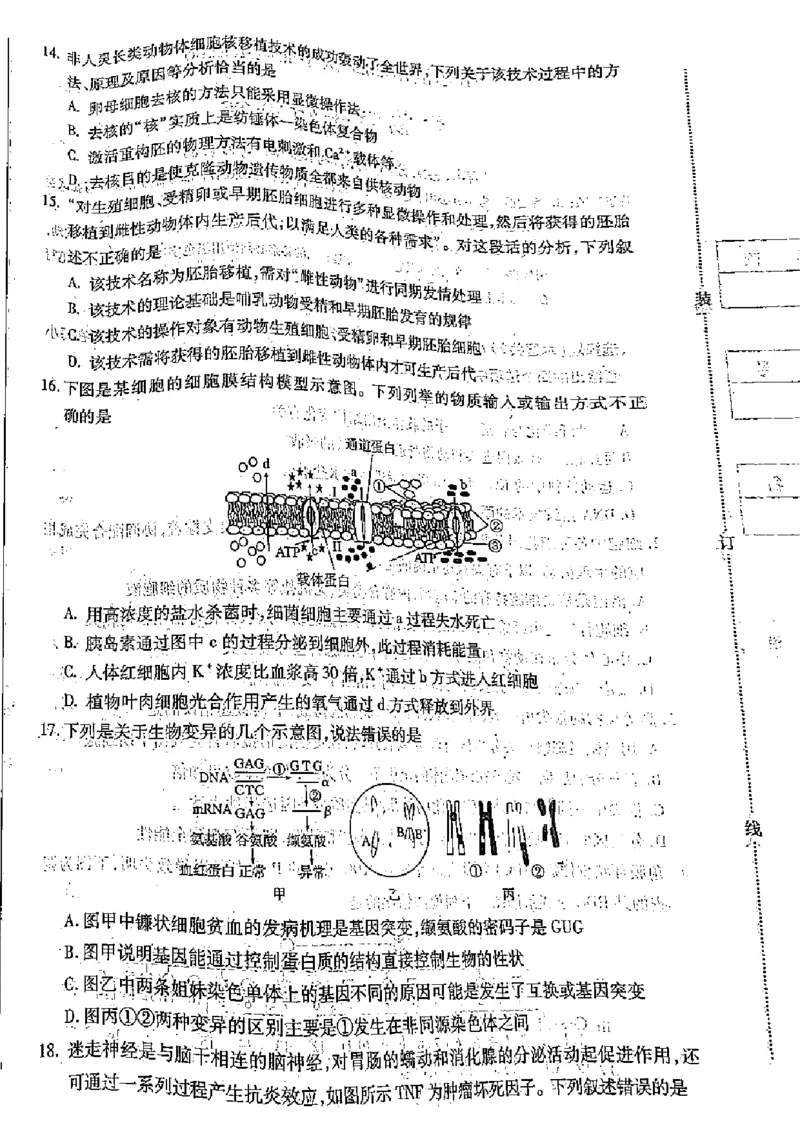 14. 非人灵长类动物体细胞核移植技术的成功轰动了全世界,下列关于该技术过程中的方
法、原理及原因等分析恰当的是
A. 卵母细胞去核的方法只能采用显微操作法
B. 去核的“核”实质上是纺锤体—染色体复合物
C. 激活重构胚的物理方法有电刺激和Ca²⁺载体等
D. 去核目的是使克隆动物遗传物质全部来自供核动物
15. “对生殖细胞、受精卵或早期胚胎细胞进行多种显微操作和处理,然后将获得的胚胎
移植到雌性动物体内生产后代,以满足人类的各种需求”。对这段话的分析,下列叙
述不正确的是
A. 该技术名称为胚胎移植,需对“雌性动物”进行同期发情处理
B. 该技术的理论基础是哺乳动物受精和早期胚胎发育的规律
C. 该技术的操作对象有动物生殖细胞、受精卵和早期胚胎细胞
D. 该技术需将获得的胚胎移植到雌性动物体内才可生产后代
16. 下图是某细胞的细胞膜结构模型示意图。下列列举的物质输入或输出方式不正
确的是
通道蛋白
d
a
Ⅰ
①
b
②
③
ATP
Ⅱ
ATP
载体蛋白
A. 用高浓度的盐水杀菌时,细菌细胞主要通过a过程失水死亡
B. 胰岛素通过图中c的过程分泌到细胞外,此过程消耗能量
C. 人体红细胞内K⁺浓度比血浆高30倍,K⁺通过b方式进入红细胞
D. 植物叶肉细胞光合作用产生的氧气通过d方式释放到外界
17. 下列是关于生物变异的几个示意图,说法错误的是
DNA GAG ① GTG
CTC α
②
mRNA GAG β
氨基酸 谷氨酸 缬氨酸
血红蛋白 正常 异常
甲
A B B
乙
① ②
丙
A. 图甲中镰状细胞贫血的发病机理是基因突变,缬氨酸的密码子是GUG
B. 图甲说明基因能通过控制蛋白质的结构直接控制生物的性状
C. 图乙中两条姐妹染色单体上的基因不同的原因可能是发生了互换或基因突变
D. 图丙①②两种变异的区别主要是①发生在非同源染色体之间
18. 迷走神经是与脑干相连的脑神经,对胃肠的蠕动和消化腺的分泌活动起促进作用,还
可通过一系列过程产生抗炎效应,如图所示TNF为肿瘤坏死因子。下列叙述错误的是
装
订
线